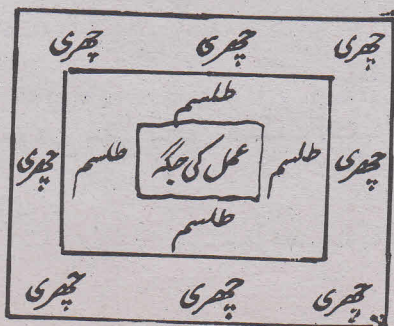 چھری چھری چھری
طلسم
چھری طلسم عمل کی جگہ طلسم چھری
طلسم
چھری چھری چھری